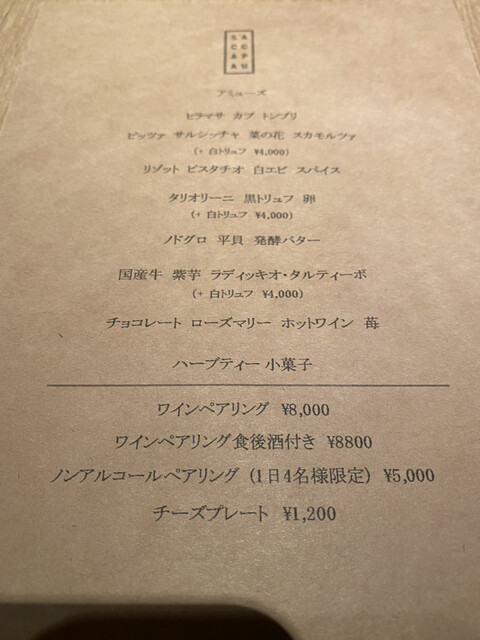 SACCAPAU
アミューズ
ヒラマサ カブ トンブリ
ピッツァ サルシッチャ 菜の花 スカモルツァ
(+ 白トリュフ ¥4,000)
リゾット ピスタチオ 白エビ スパイス
タリオリーニ 黒トリュフ 卵
(+ 白トリュフ ¥4,000)
ノドグロ 平貝 発酵バター
国産牛 紫芋 ラディッキオ・タルティーボ
(+ 白トリュフ ¥4,000)
チョコレート ローズマリー ホットワイン 苺
ハーブティー 小菓子
ワインペアリング ¥8,000
ワインペアリング食後酒付き ¥8800
ノンアルコールペアリング (1日4名様限定) ¥5,000
チーズプレート ¥1,200